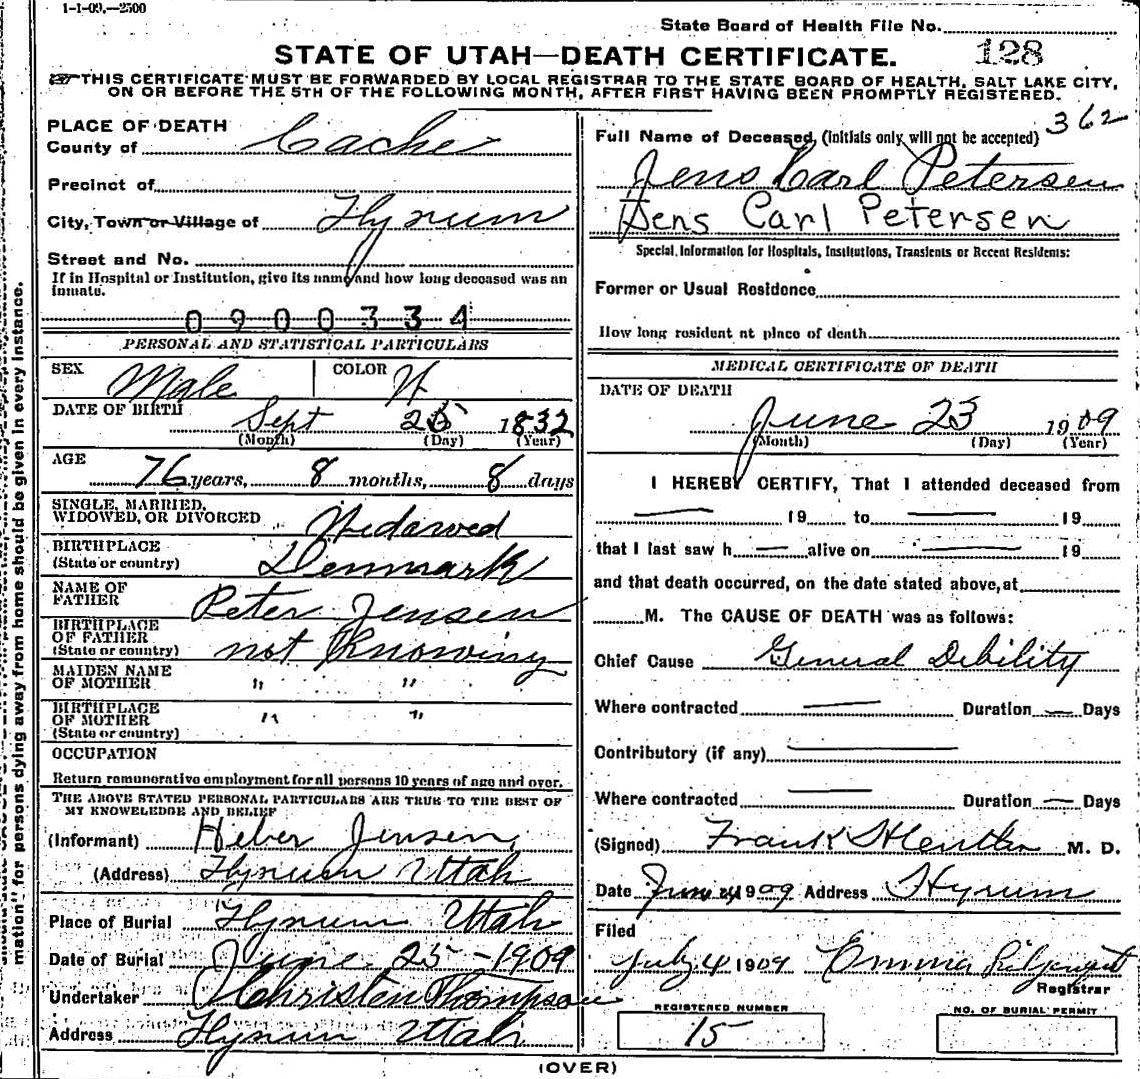 1-1-09.—2500
State Board of Health File No.
128
STATE OF UTAH—DEATH CERTIFICATE.
THIS CERTIFICATE MUST BE FORWARDED BY LOCAL REGISTRAR TO THE STATE BOARD OF HEALTH, SALT LAKE CITY,
ON OR BEFORE THE 5TH OF THE FOLLOWING MONTH, AFTER FIRST HAVING BEEN PROMPTLY REGISTERED.
PLACE OF DEATH
County of Cache
Precinct of
City, Town or Village of Hyrum
Street and No.
If in Hospital or Institution, give its name and how long deceased was an
inmate.
0900334
PERSONAL AND STATISTICAL PARTICULARS
SEX Male COLOR W
DATE OF BIRTH Sept 1832
(Month) (Day) (Year)
AGE
76 years, 8 months, 8 days
SINGLE, MARRIED,
WIDOWED, OR DIVORCED Widowed
BIRTHPLACE
(State or country) Denmark
NAME OF
FATHER Peter Jensen
BIRTHPLACE
OF FATHER
(State or country) not Knowing
MAIDEN NAME
OF MOTHER " "
BIRTHPLACE
OF MOTHER " "
(State or country)
OCCUPATION
Return remunerative employment for all persons 10 years of age and over.
THE ABOVE STATED PERSONAL PARTICULARS ARE TRUE TO THE BEST OF
MY KNOWLEDGE AND BELIEF
(Informant) Heber Jensen,
(Address) Hyrum Utah
Place of Burial Hyrum Utah
Date of Burial June 25 - 1909
Undertaker Christen Thompson
Address Hyrum Utah
362
Full Name of Deceased, (initials only will not be accepted)
Jens Carl Petersen
Jens Carl Petersen
Special Information for Hospitals, Institutions, Transients or Recent Residents:
Former or Usual Residence
How long resident at place of death
MEDICAL CERTIFICATE OF DEATH
DATE OF DEATH
June 23 1909
(Month) (Day) (Year)
I HEREBY CERTIFY, That I attended deceased from
— 19 to — 19
that I last saw h — alive on — 19
and that death occurred, on the date stated above, at
M. The CAUSE OF DEATH was as follows:
Chief Cause General Debility
Where contracted — Duration — Days
Contributory (if any) —
Where contracted — Duration — Days
(Signed) Frank M. D.
Date June 1909 Address Hyrum
Filed
July 4 1909 Emma
Registrar
REGISTERED NUMBER
15
NO. OF BURIAL PERMIT
(OVER)
mation" for persons dying away from home should be given in every instance.